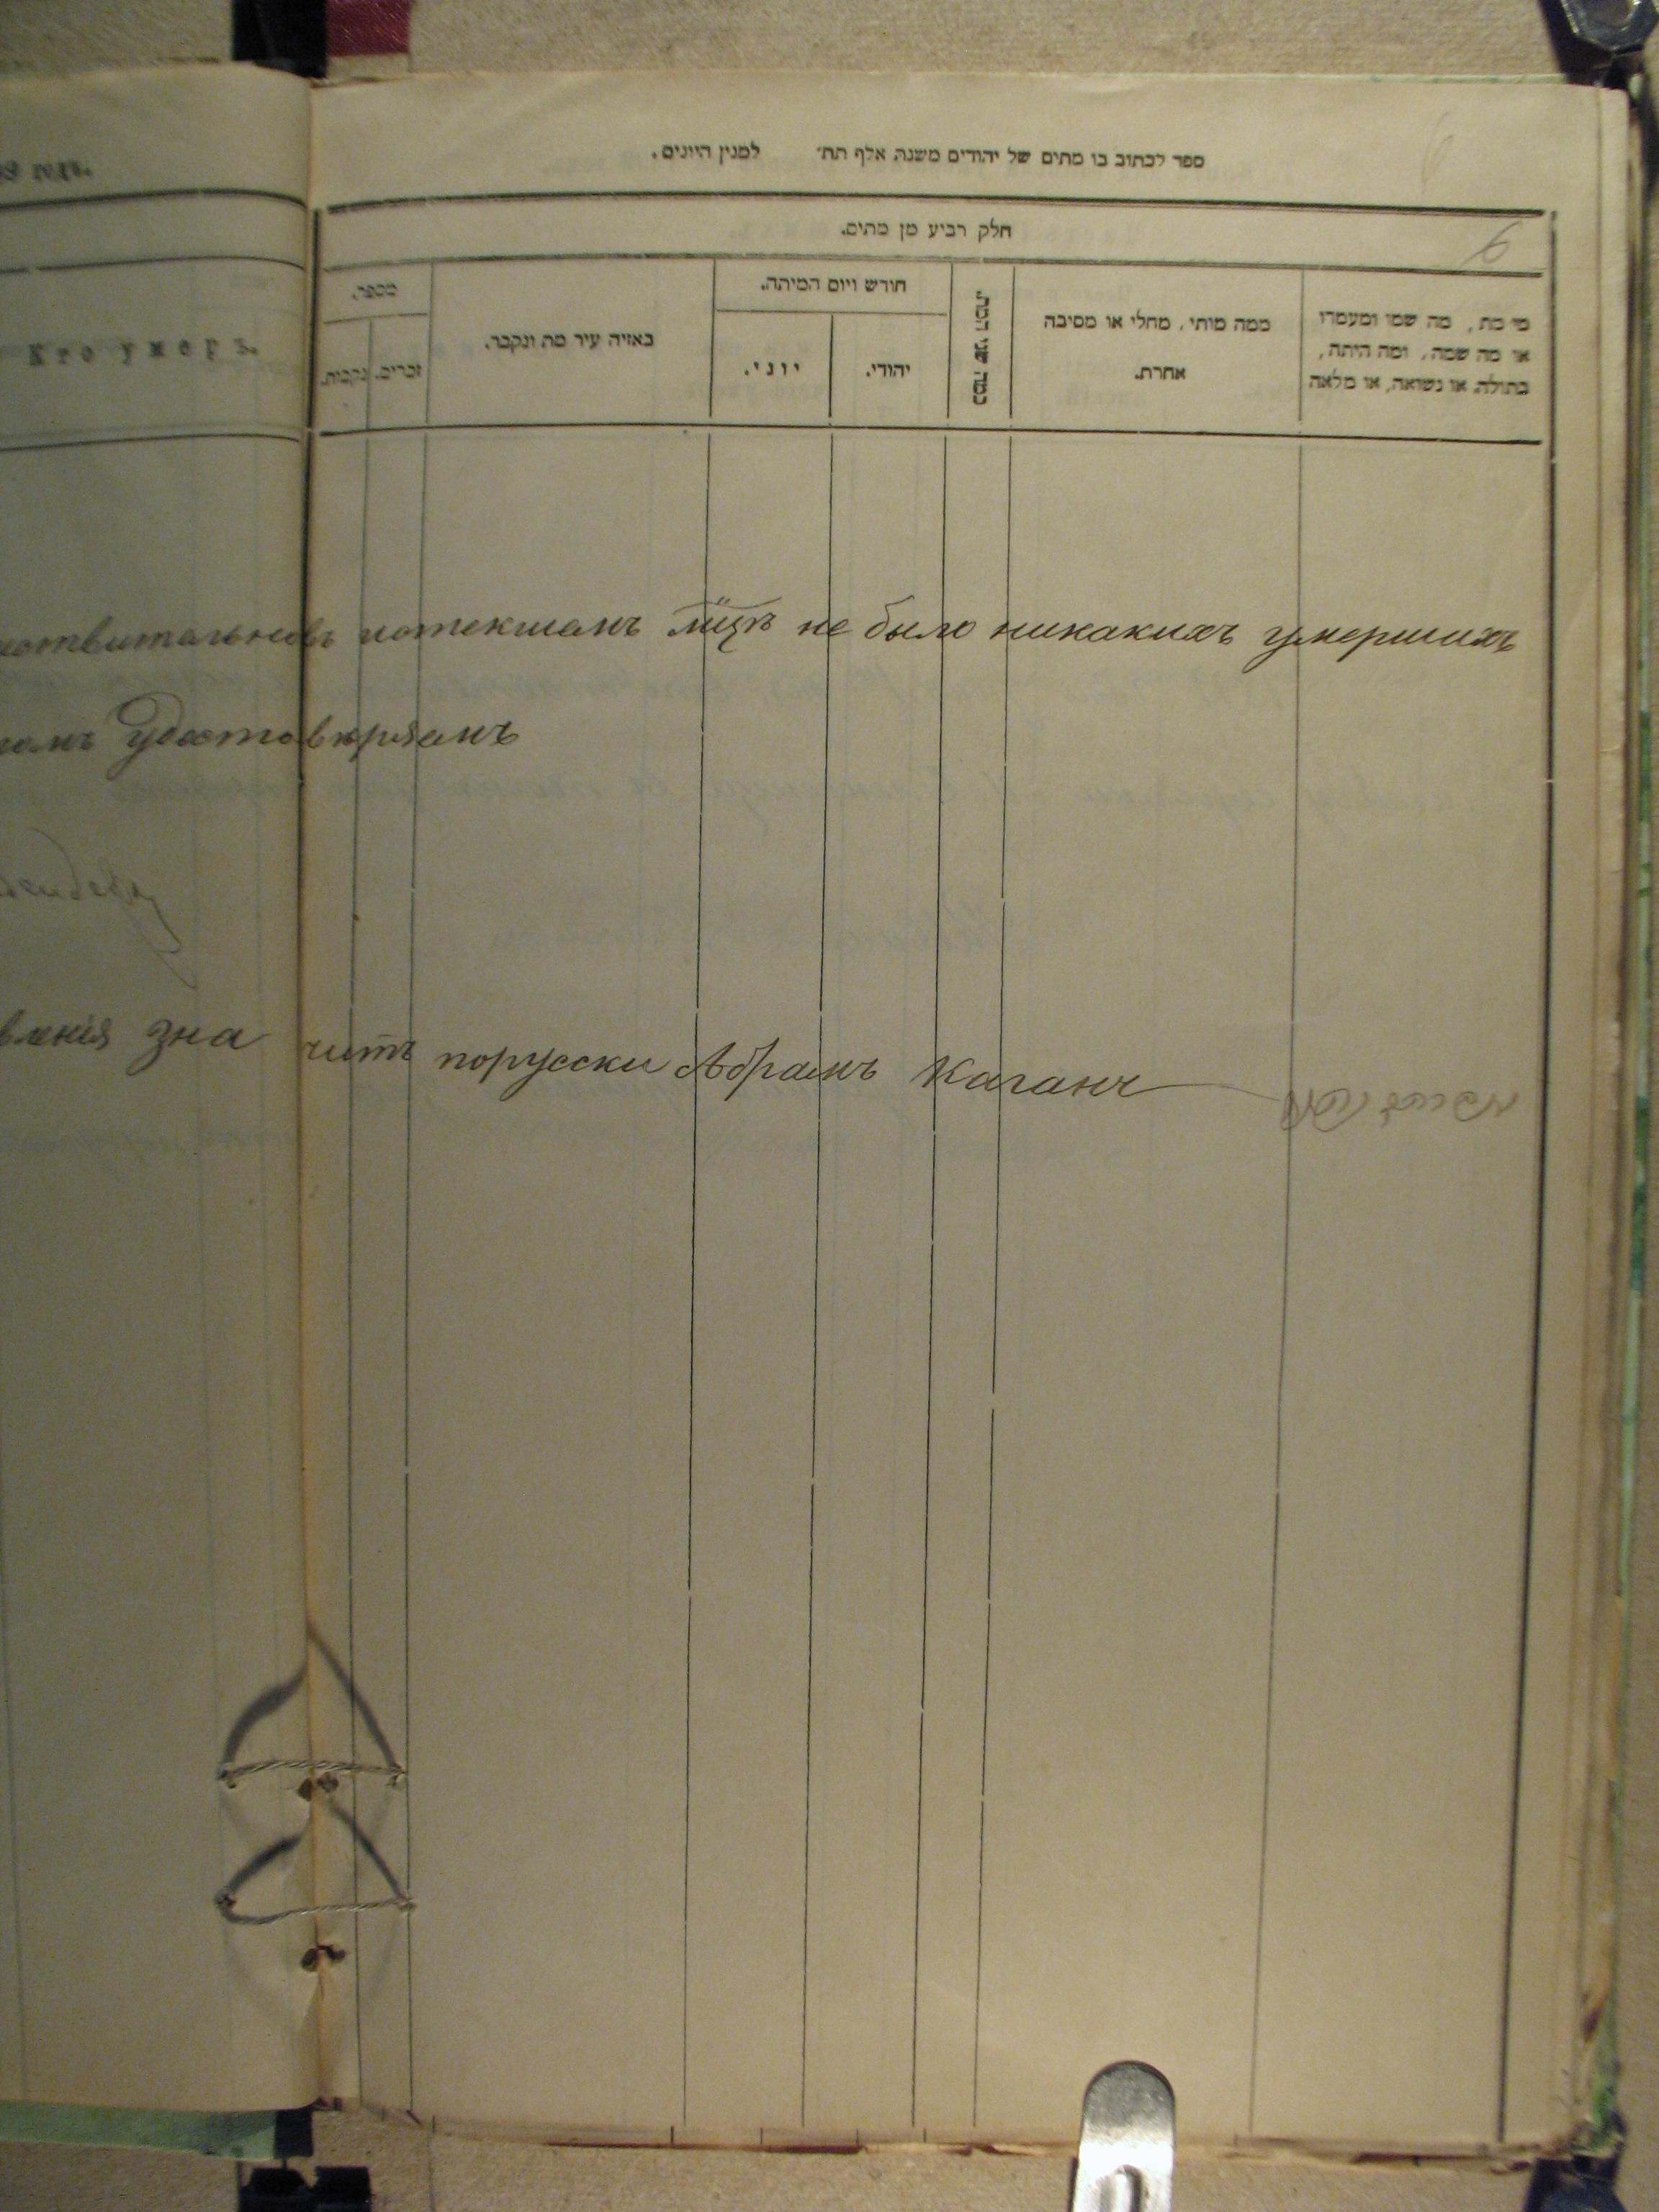 годъ.
ספר לכתוב בו מתים של יהודים משנת אלף תת׳ למנין היונים.
חלק רביע מן מתים.
Кто умеръ.
מספר.
זכרים. נקבות.
באיזה עיר מת ונקבר.
חודש ויום המיתה.
יוני. יהודי.
כמה שני המת.
ממה מותו, מחלי או מסיבה
אחרת.
מי מת, מה שמו ומעמדו
או מה שמה, ומה היתה,
בתולה או נשואה, או מלאה
истекшемъ мцѣ не было никакихъ умершихъ
удостовѣряемъ
вленія значитъ порусски Абрамъ Каганъ